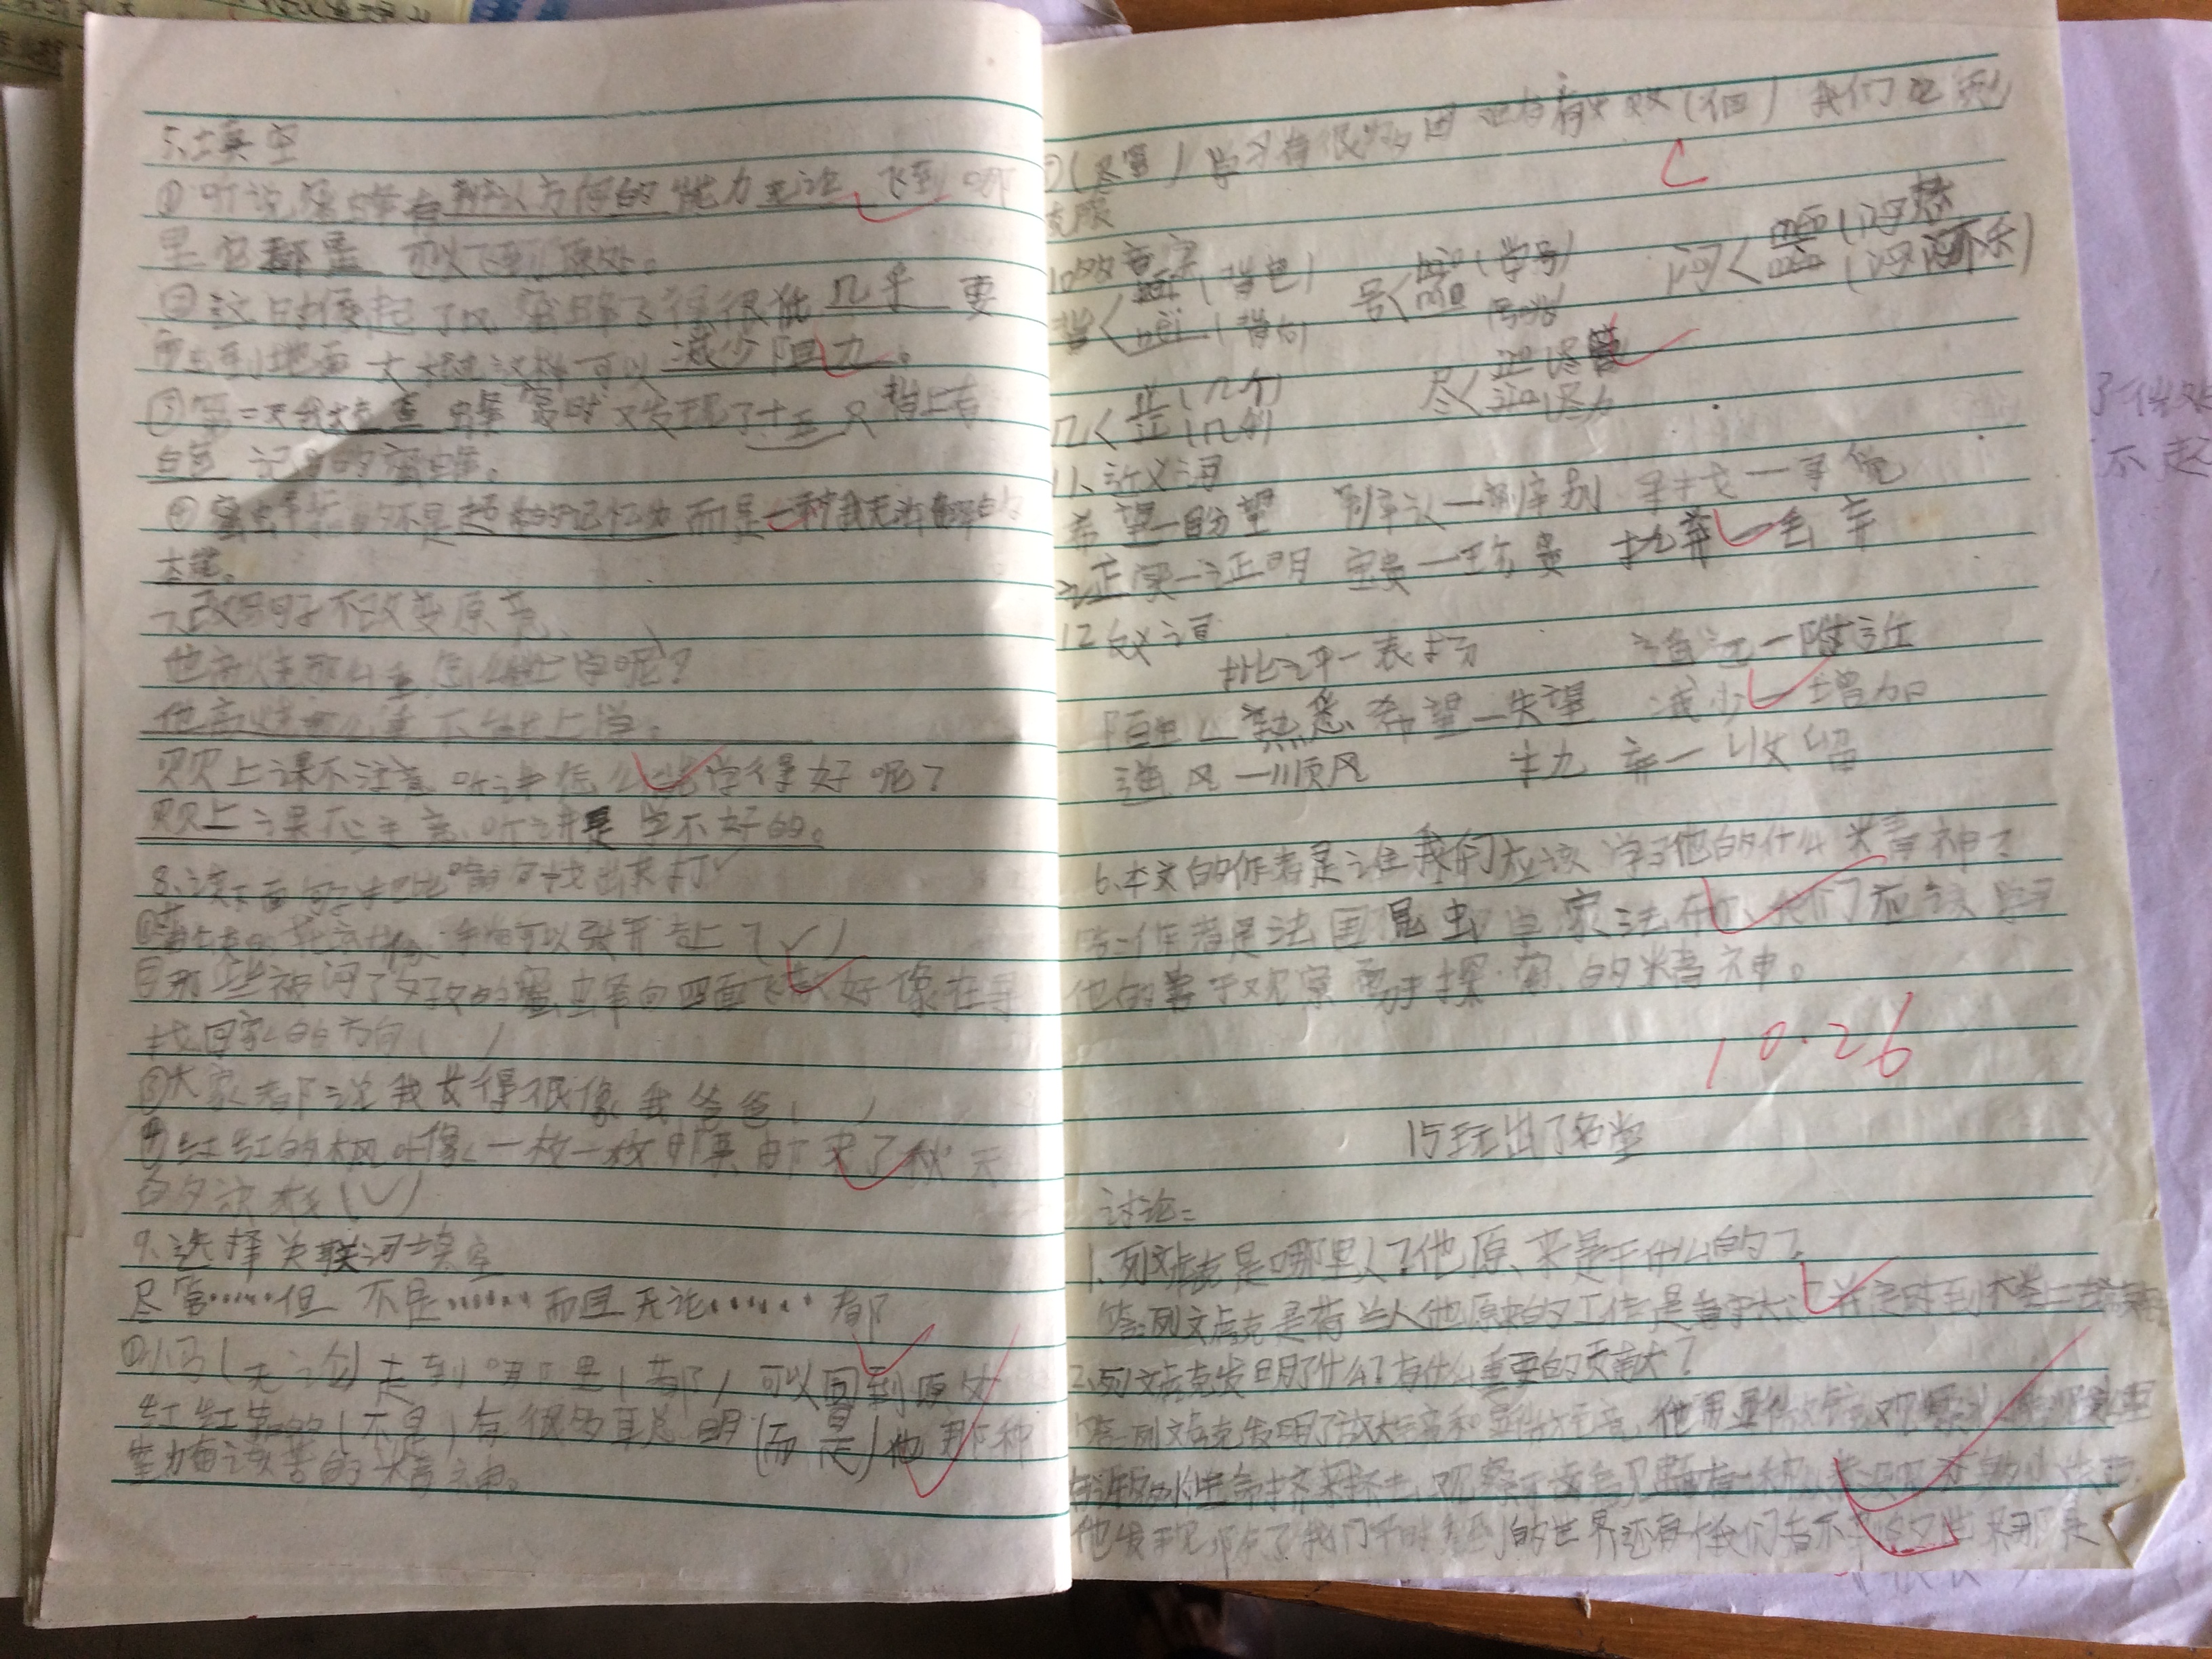 5、填空
①听说蜜蜂有辨认方向的能力无论飞到哪
里它都是可以飞到原处。
②这时候起了风蜜蜂飞得很低几乎要
到地面大概这样可以减少阻力。
③第二天我检查蜂窝时又发现了十五只背上有
白色记号的蜜蜂。
④蜜蜂靠的不是超常的记忆力而是一种我无法解释的
本能。
7、改写句子不改变原意
他病得那么重怎么能上学呢?
他病得那么重不能上学。
贝贝上课不注意听讲怎么能学得好呢?
贝贝上课不注意听讲是学不好的。
8、读下面句子把比喻句找出来打✓
(✓)
③那些被闷了好久的蜜蜂向四面飞散好像在寻
找回家的方向( )
③大家都说我长得很像我爸爸( )
④红红的枫叶像一枚一枚邮票邮来了秋天
的凉爽(✓)
9、选择关联词填空
尽管……但 不是……而且 无论……都
①小马(无论)走到哪里(都)可以回到原处
红红靠的(不是)有很多聪明(而是)他那种
能刻苦的精神。
(尽管)学习有很多困 (但)我们
克服
10多音字
背< (背包) 号< (学号) 闷< (沉闷)
bēi (背向) 号 (闷闷不乐)
几< (几个) 尽< (尽管)
(几乎) (尽力)
11、近义词
希望—盼望 辨认—辨别 寻找—寻觅
证实—证明 宝贵—珍贵 抛弃—丢弃
12反义词
批评—表扬 遥远—附近
陌生—熟悉 希望—失望 减少—增加
逆风—顺风 抛弃—收留
6、本文的作者是谁我们应该学习他的什么精神?
答:作者是法国昆虫学家法布尔、我们应该学习
他的善于观察勇于探索的精神。
10.26
15玩出了名堂
讨论:
1、列文虎克是哪里人?他原来是干什么的?
答:列文虎克是荷兰人他原来的工作是看守大门并定时到大楼上去敲钟
2、列文虎克发明了什么?有什么重要的贡献?
答:列文虎克发明了放大镜和显微镜,他用显微镜观察
的小生命挤来挤去,观察
他发现 了我们平时看到的世界还有 我们看不到 世界那是